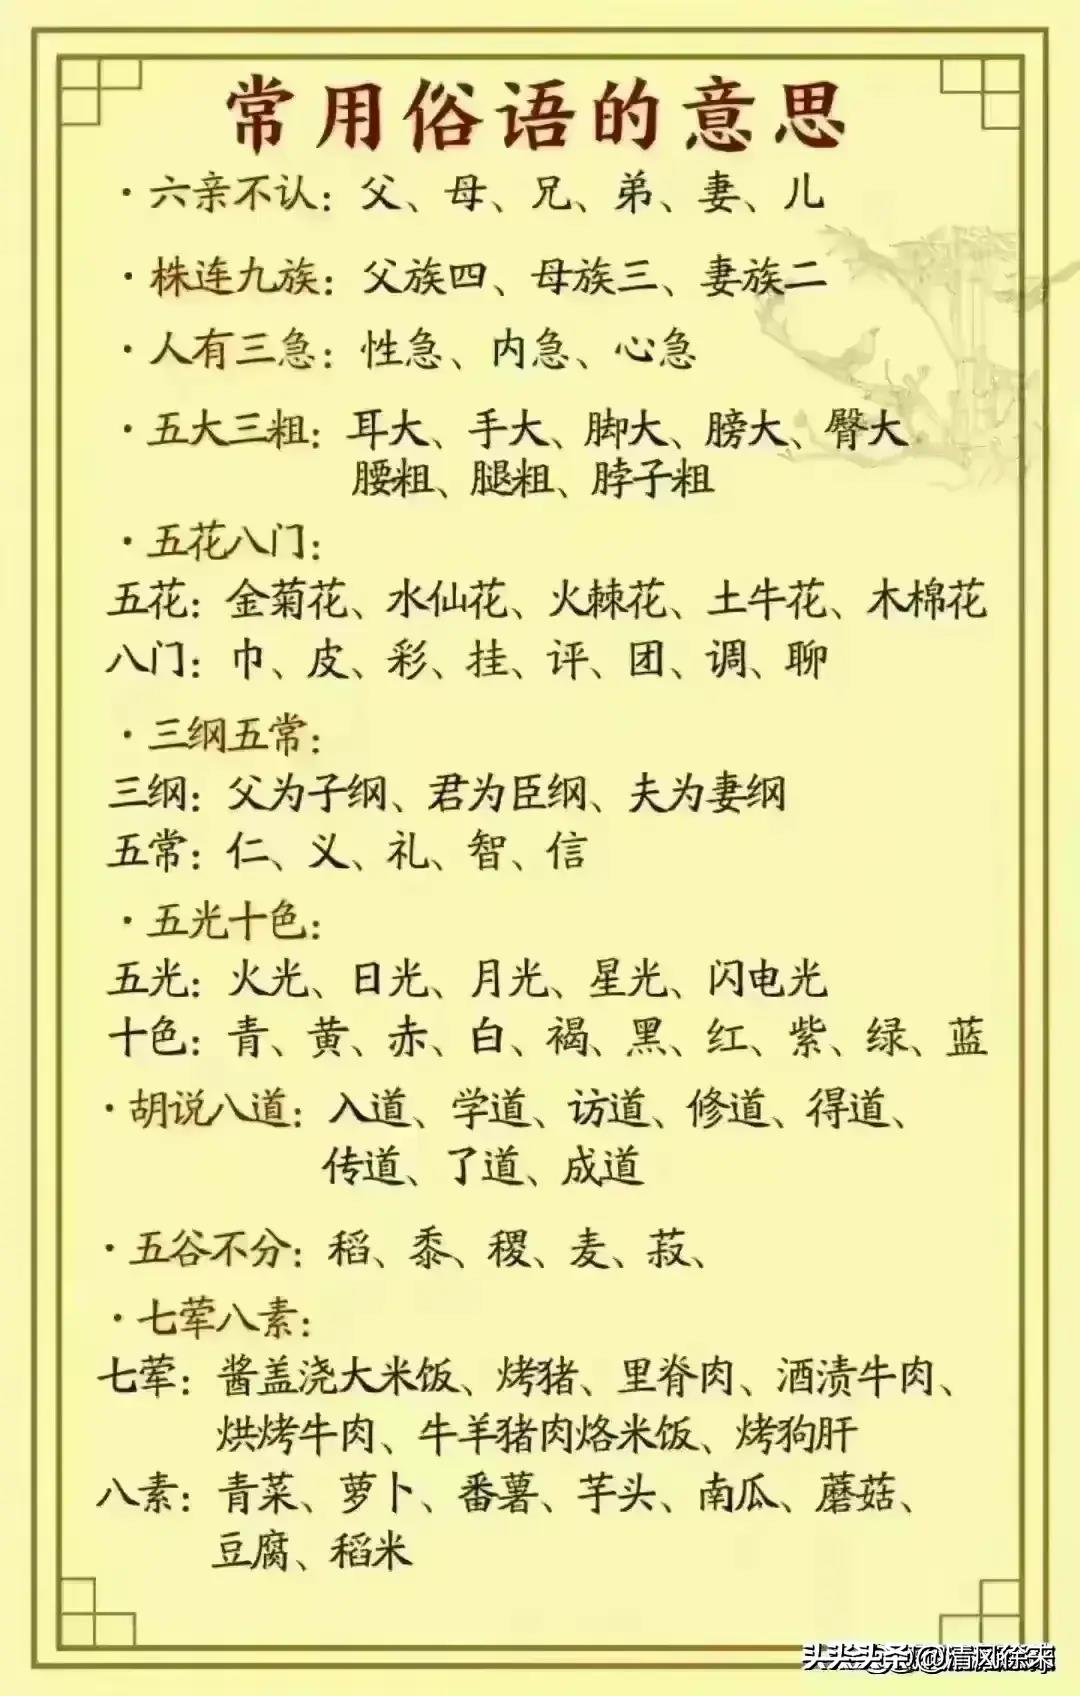 常用俗语的意思
·六亲不认：父、母、兄、弟、妻、儿
·株连九族：父族四、母族三、妻族二
·人有三急：性急、内急、心急
·五大三粗：耳大、手大、脚大、膀大、臀大
腰粗、腿粗、脖子粗
·五花八门：
五花：金菊花、水仙花、火棘花、土牛花、木棉花
八门：巾、皮、彩、挂、评、团、调、聊
·三纲五常：
三纲：父为子纲、君为臣纲、夫为妻纲
五常：仁、义、礼、智、信
·五光十色：
五光：火光、日光、月光、星光、闪电光
十色：青、黄、赤、白、褐、黑、红、紫、绿、蓝
·胡说八道：入道、学道、访道、修道、得道、
传道、了道、成道
·五谷不分：稻、黍、稷、麦、菽、
·七荤八素：
七荤：酱盖浇大米饭、烤猪、里脊肉、酒渍牛肉、
烘烤牛肉、牛羊猪肉烙米饭、烤狗肝
八素：青菜、萝卜、番薯、芋头、南瓜、蘑菇、
豆腐、稻米
头条 @清风徐来